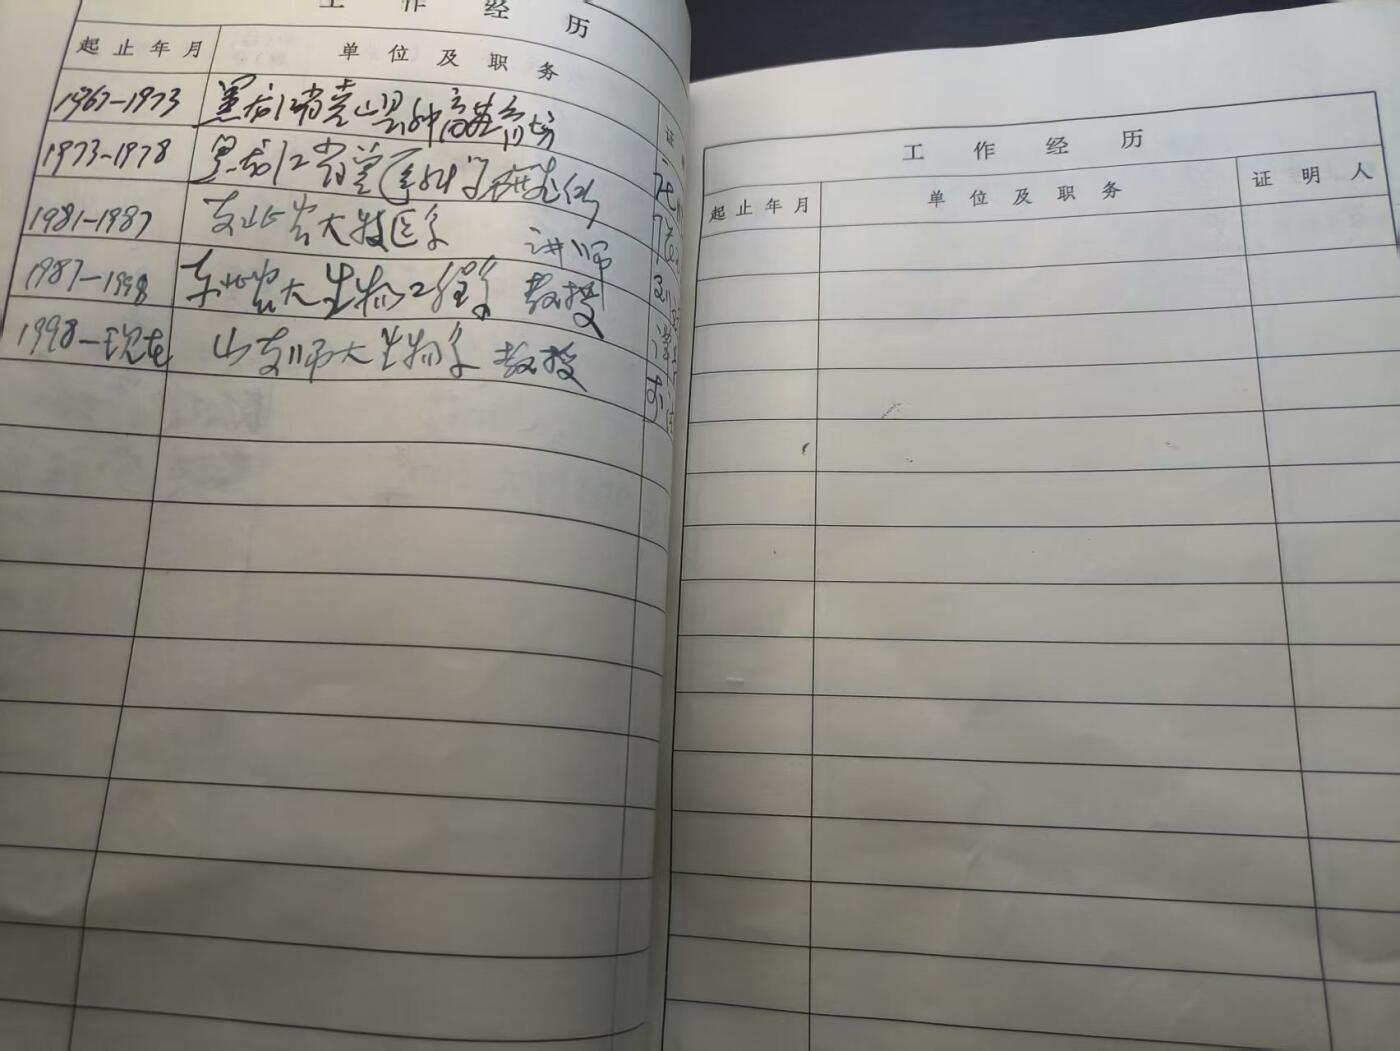 工作经历
起止年月 单位及职务 证
1967—1973 黑龙江省 山县种畜 场
1973—1978 黑龙江省兽医科学研究所
1981—1987 东北农大牧医系 讲师
1987—1998 东北农大生物工程系 教授
1998—现在 山东师大生物系 教授
工作经历
起止年月 单位及职务 证明人